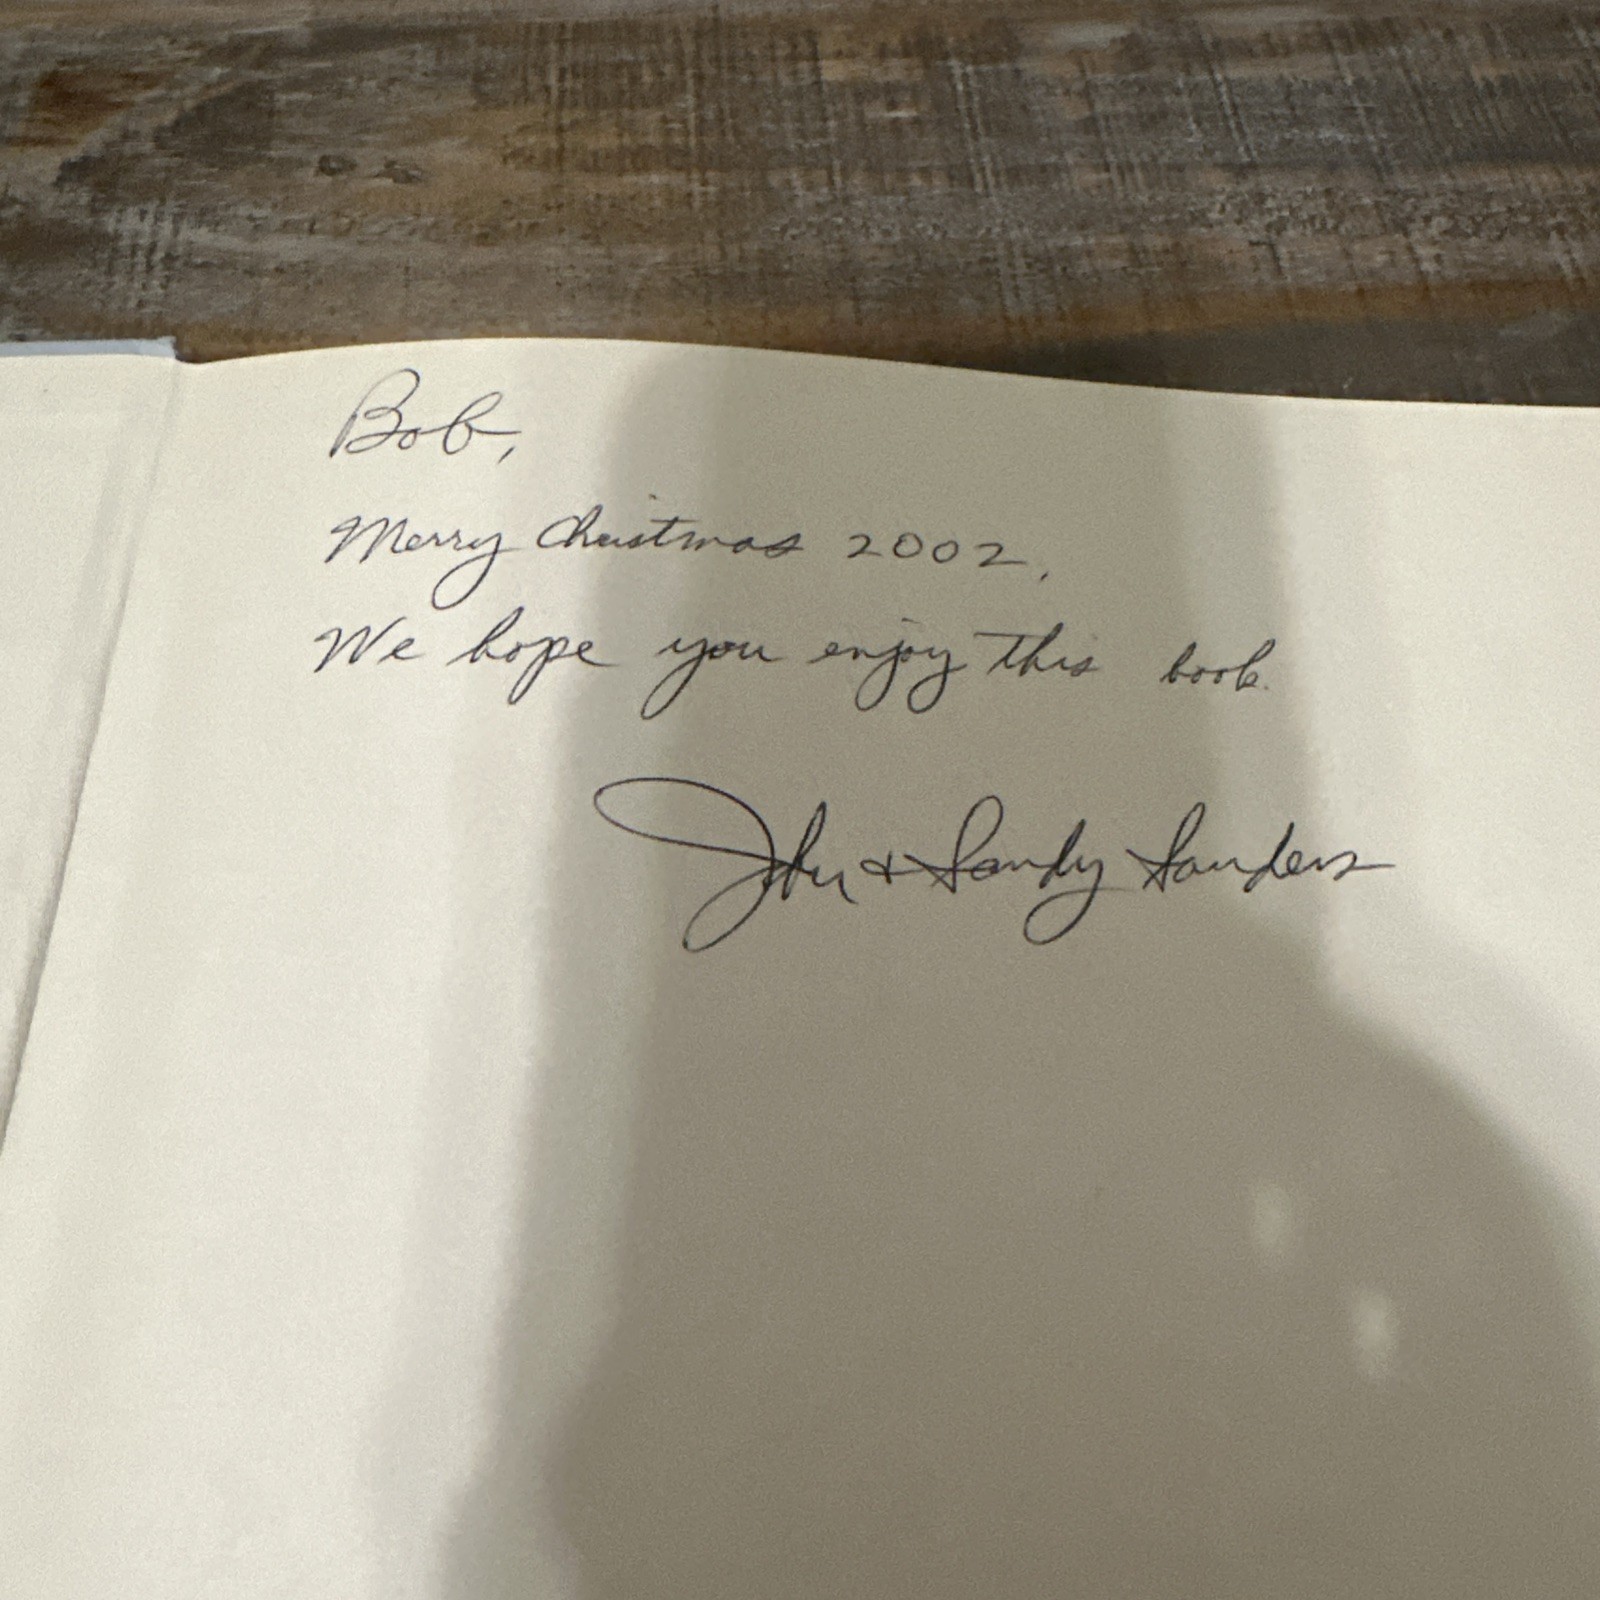 Bob,
Merry Christmas 2002.
We hope you enjoy this book.
John & Sandy Sanders